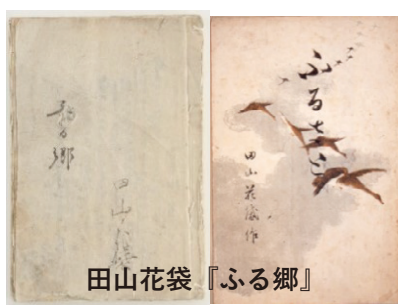 ふる郷
田山花袋
ふるさと
田山花袋作
田山花袋『ふる郷』